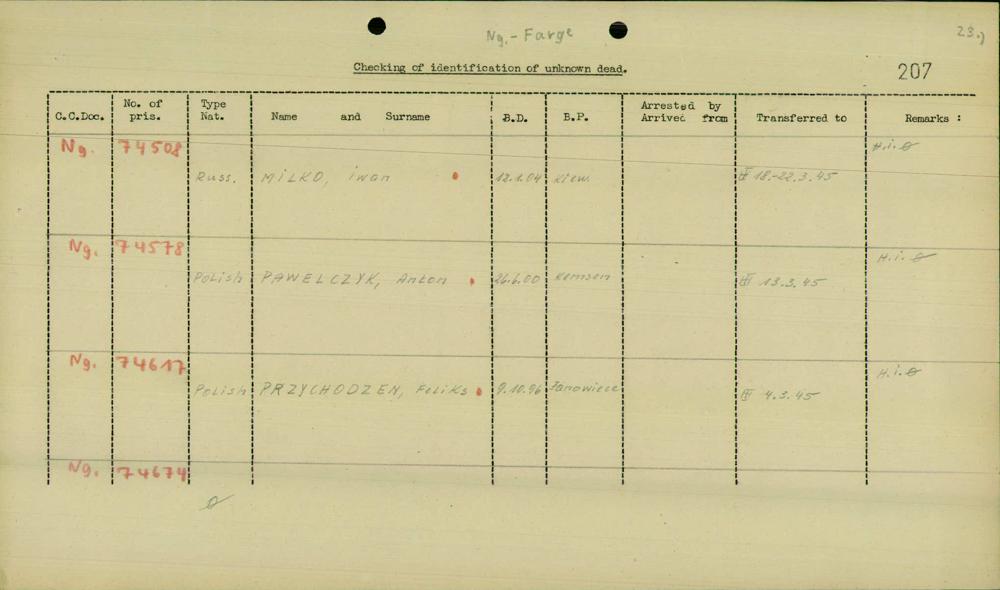 Ng. - Farge
23.)
Checking of identification of unknown dead.
207
C.C.Doc. No. of pris. Type Nat. Name and Surname B.D. B.P. Arrested by Arrived from Transferred to Remarks :
Ng. 74508 H.i.
Russ. MILKO, iwan 12.1.04 Kiew 18.-22.3.45
Ng. 74578 H.i.
Polish PAWELCZYK, Anton 26.6.00 13.3.45
Ng. 74617 H.i.
Polish PRZYCHODZEN, Feliks 9.10.96 Janowiece 4.3.45
Ng. 74674